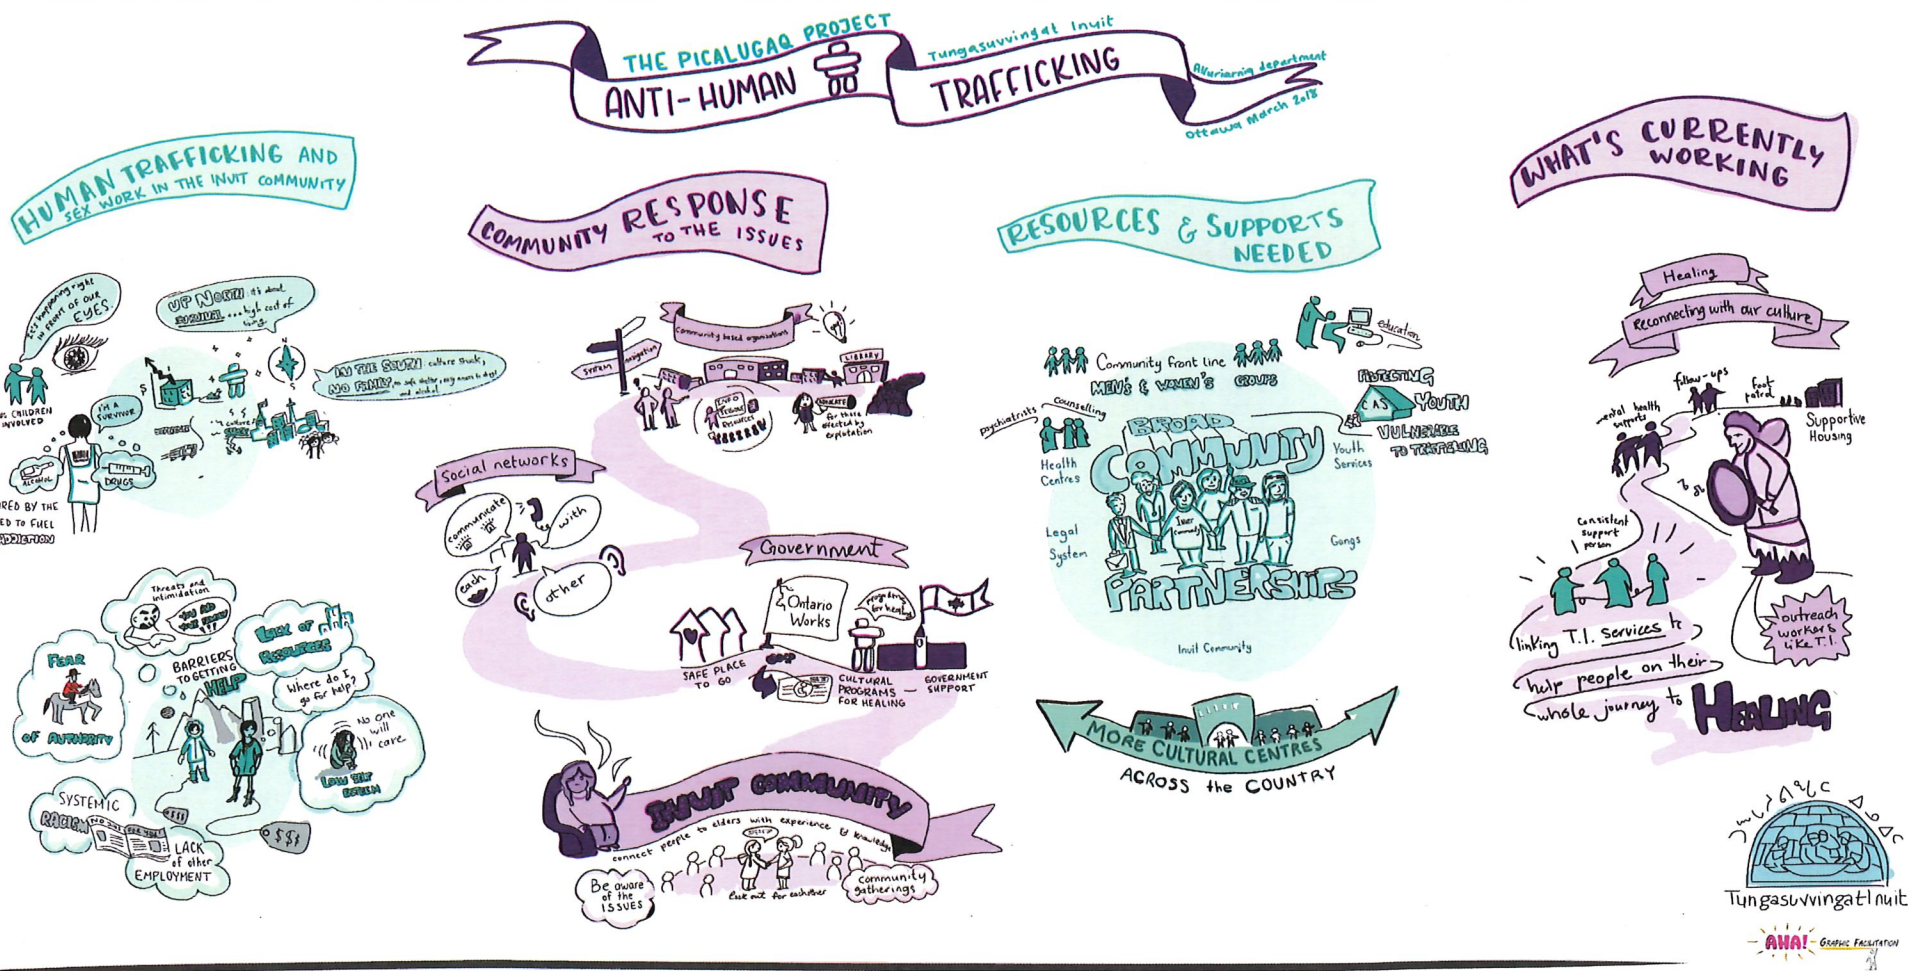 THE PICALUGAQ PROJECT
ANTI-HUMAN TRAFFICKING
Tungasuvvingat Inuit
Alluriarniq department
Ottawa March 2018
HUMAN TRAFFICKING AND
SEX WORK IN THE INUIT COMMUNITY
It's happening right
IN FRONT OF OUR
EYES.
UP NORTH: it's about
SURVIVAL ... high cost of
living
IN THE SOUTH: culture shock,
NO FAMILY, no safe shelter
and alcohol
N
S
$
$
CHILDREN
INVOLVED
I'M A
SURVIVOR
culture
ALCOHOL
DRUGS
BY THE
TO FUEL
ADDICTION
Threats and
Intimidation
YOU AND
YOUR FAMILY
!!!
LACK OF
RESOURCES
BARRIERS
TO GETTING
HELP
Where do I
go for help?
FEAR
OF AUTHORITY
No one
will
care
LOW SELF
ESTEEM
SYSTEMIC
RACISM
NOT FOR YOU!
$$$
$$$
LACK
of other
EMPLOYMENT
COMMUNITY RESPONSE
TO THE ISSUES
Community based organizations
SYSTEM navigation
LIBRARY
INFO
RESOURCES
ADVOCATE
for those
affected by
exploitation
Social networks
communicate
with
each
other
Government
Ontario
Works
programs
for healing
SAFE PLACE
TO GO
CULTURAL
PROGRAMS
FOR HEALING
GOVERNMENT
SUPPORT
INUIT COMMUNITY
connect people to elders with experience & knowledge
Be aware
of the
ISSUES
look out for eachother
community
gatherings
RESOURCES & SUPPORTS
NEEDED
education
Community front line
MEN'S & WOMEN'S GROUPS
PROTECTING
YOUTH
VULNERABLE
TO TRAFFICKING
CAS
psychiatrists
counselling
Health
Centres
BROAD
COMMUNITY
PARTNERSHIPS
Youth
Services
Inuit
Community
Legal
System
Gangs
Inuit Community
MORE CULTURAL CENTRES
ACROSS the COUNTRY
WHAT'S CURRENTLY
WORKING
Healing
Reconnecting with our culture
follow-ups
foot
patrol
mental health
supports
Supportive
Housing
Consistent
support
person
outreach
workers
like T.I.
linking T.I. services to
help people on their
whole journey to
HEALING
TungasuvvingatInuit
AHA! GRAPHIC FACILITATION